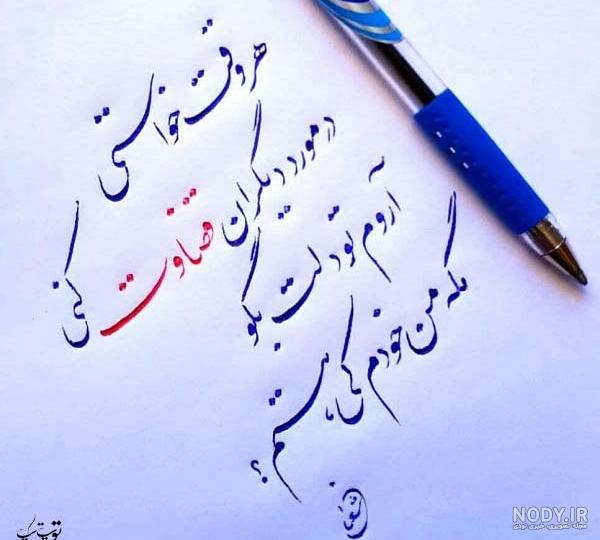 هر وقت خواستی
در مورد دیگران قضاوت کنی
آروم تو دلت بگو
مگه من خودم هستم؟
NODY.IR
مجله تصویری، خبری نودی